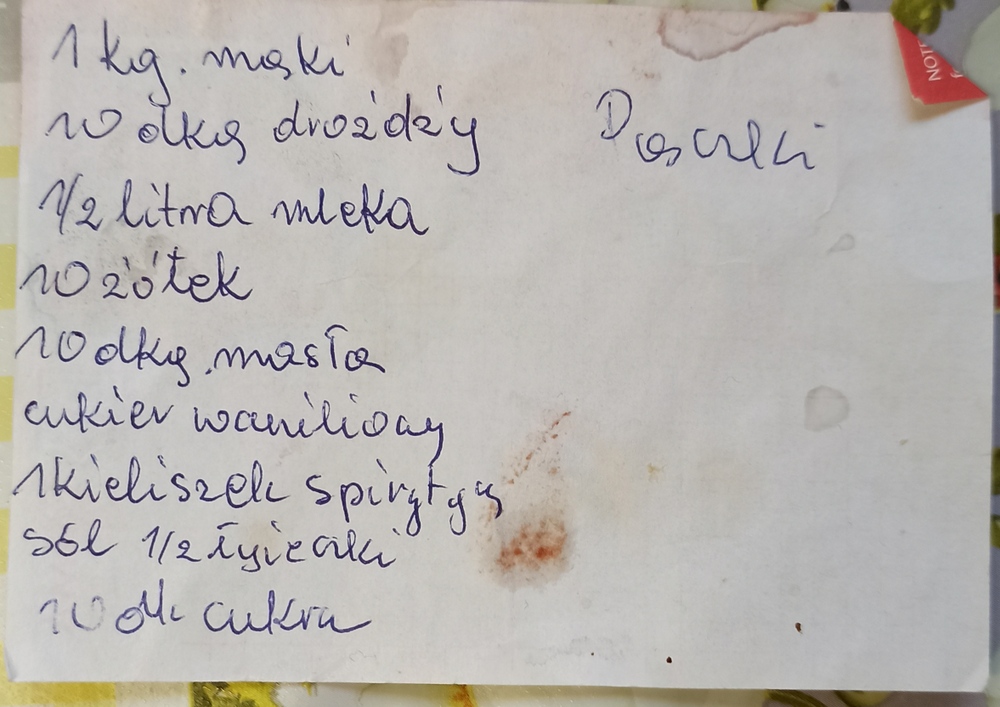 1 kg. mąki
10 dkg drożdży
Pączki
1/2 litra mleka
10 żółtek
10 dkg masła
cukier waniliowy
1 kieliszek spirytusu
sól 1/2 łyżeczki
10 dk cukru
NOTE